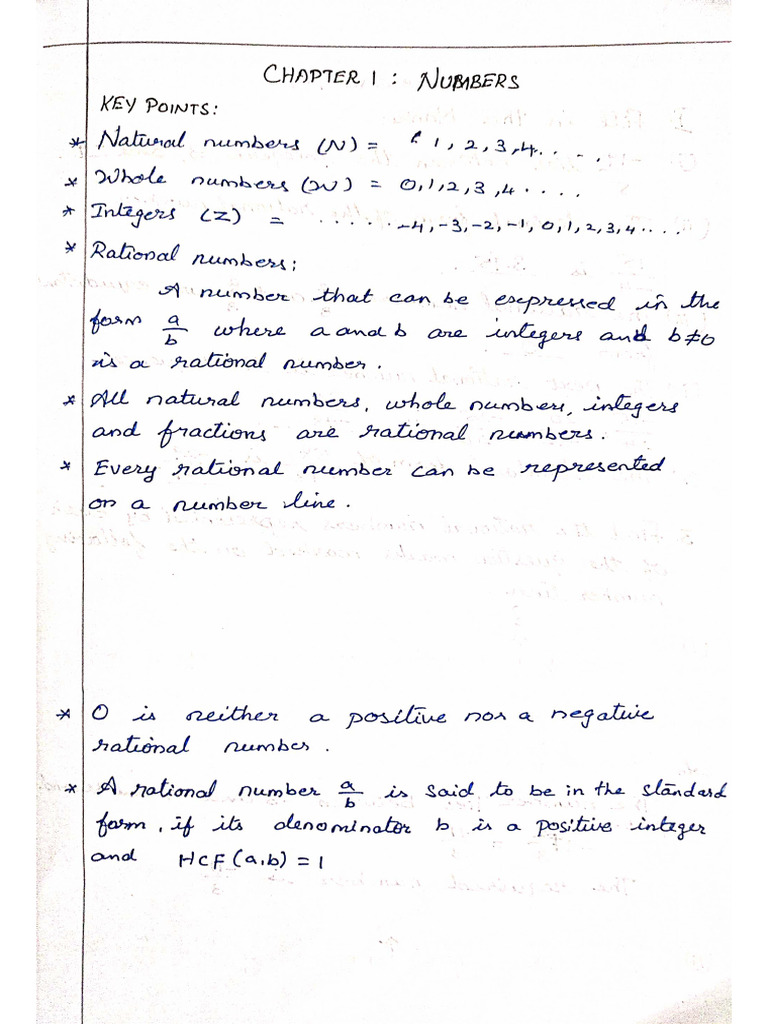 CHAPTER 1 : NUMBERS
KEY POINTS:
* Natural numbers (N) = 1, 2, 3, 4. . - . .
* Whole numbers (W) = 0, 1, 2, 3, 4 . . . .
* Integers (Z) = . . . . . -4, -3, -2, -1, 0, 1, 2, 3, 4 . . . .
* Rational numbers:
A number that can be expressed in the
form a/b where a and b are integers and b≠0
is a rational number.
* All natural numbers, whole numbers, integers
and fractions are rational numbers.
* Every rational number can be represented
on a number line.
* 0 is neither a positive nor a negative
rational number.
* A rational number a/b is said to be in the standard
form, if its denominator b is a positive integer
and HCF(a,b) = 1